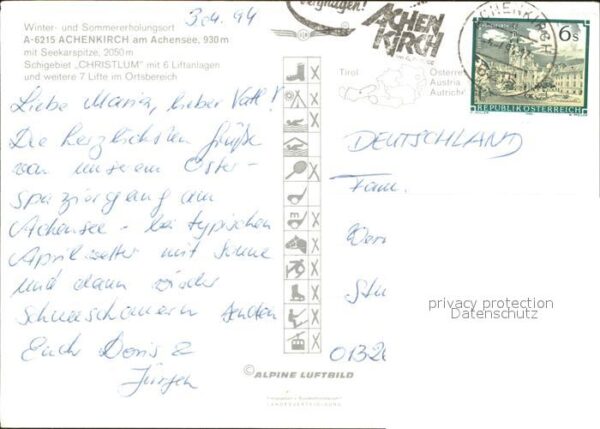 Winter- und Sommererholungsort
3.4.94
A-6215 ACHENKIRCH am Achensee, 930 m
mit Seekarspitze, 2050 m
Schigebiet „CHRISTLUM" mit 6 Liftanlagen
und weitere 7 Lifte im Ortsbereich
Liebe Maria, lieber Vati!
Die herzlichsten Grüße
von unserem Oster-
spaziergang am
Achensee - bei typischen
Aprilwetter mit Sonne
und dann wieder
Schneeschauern senden
Euch Doris &
Jürgen
ACHEN
KIRCH
Tirol
Österreich
Austria
Autriche
ACHENKIRCH
6 S
REPUBLIK ÖSTERREICH
DEUTSCHLAND
Fam.
privacy protection
Datenschutz
© ALPINE LUFTBILD